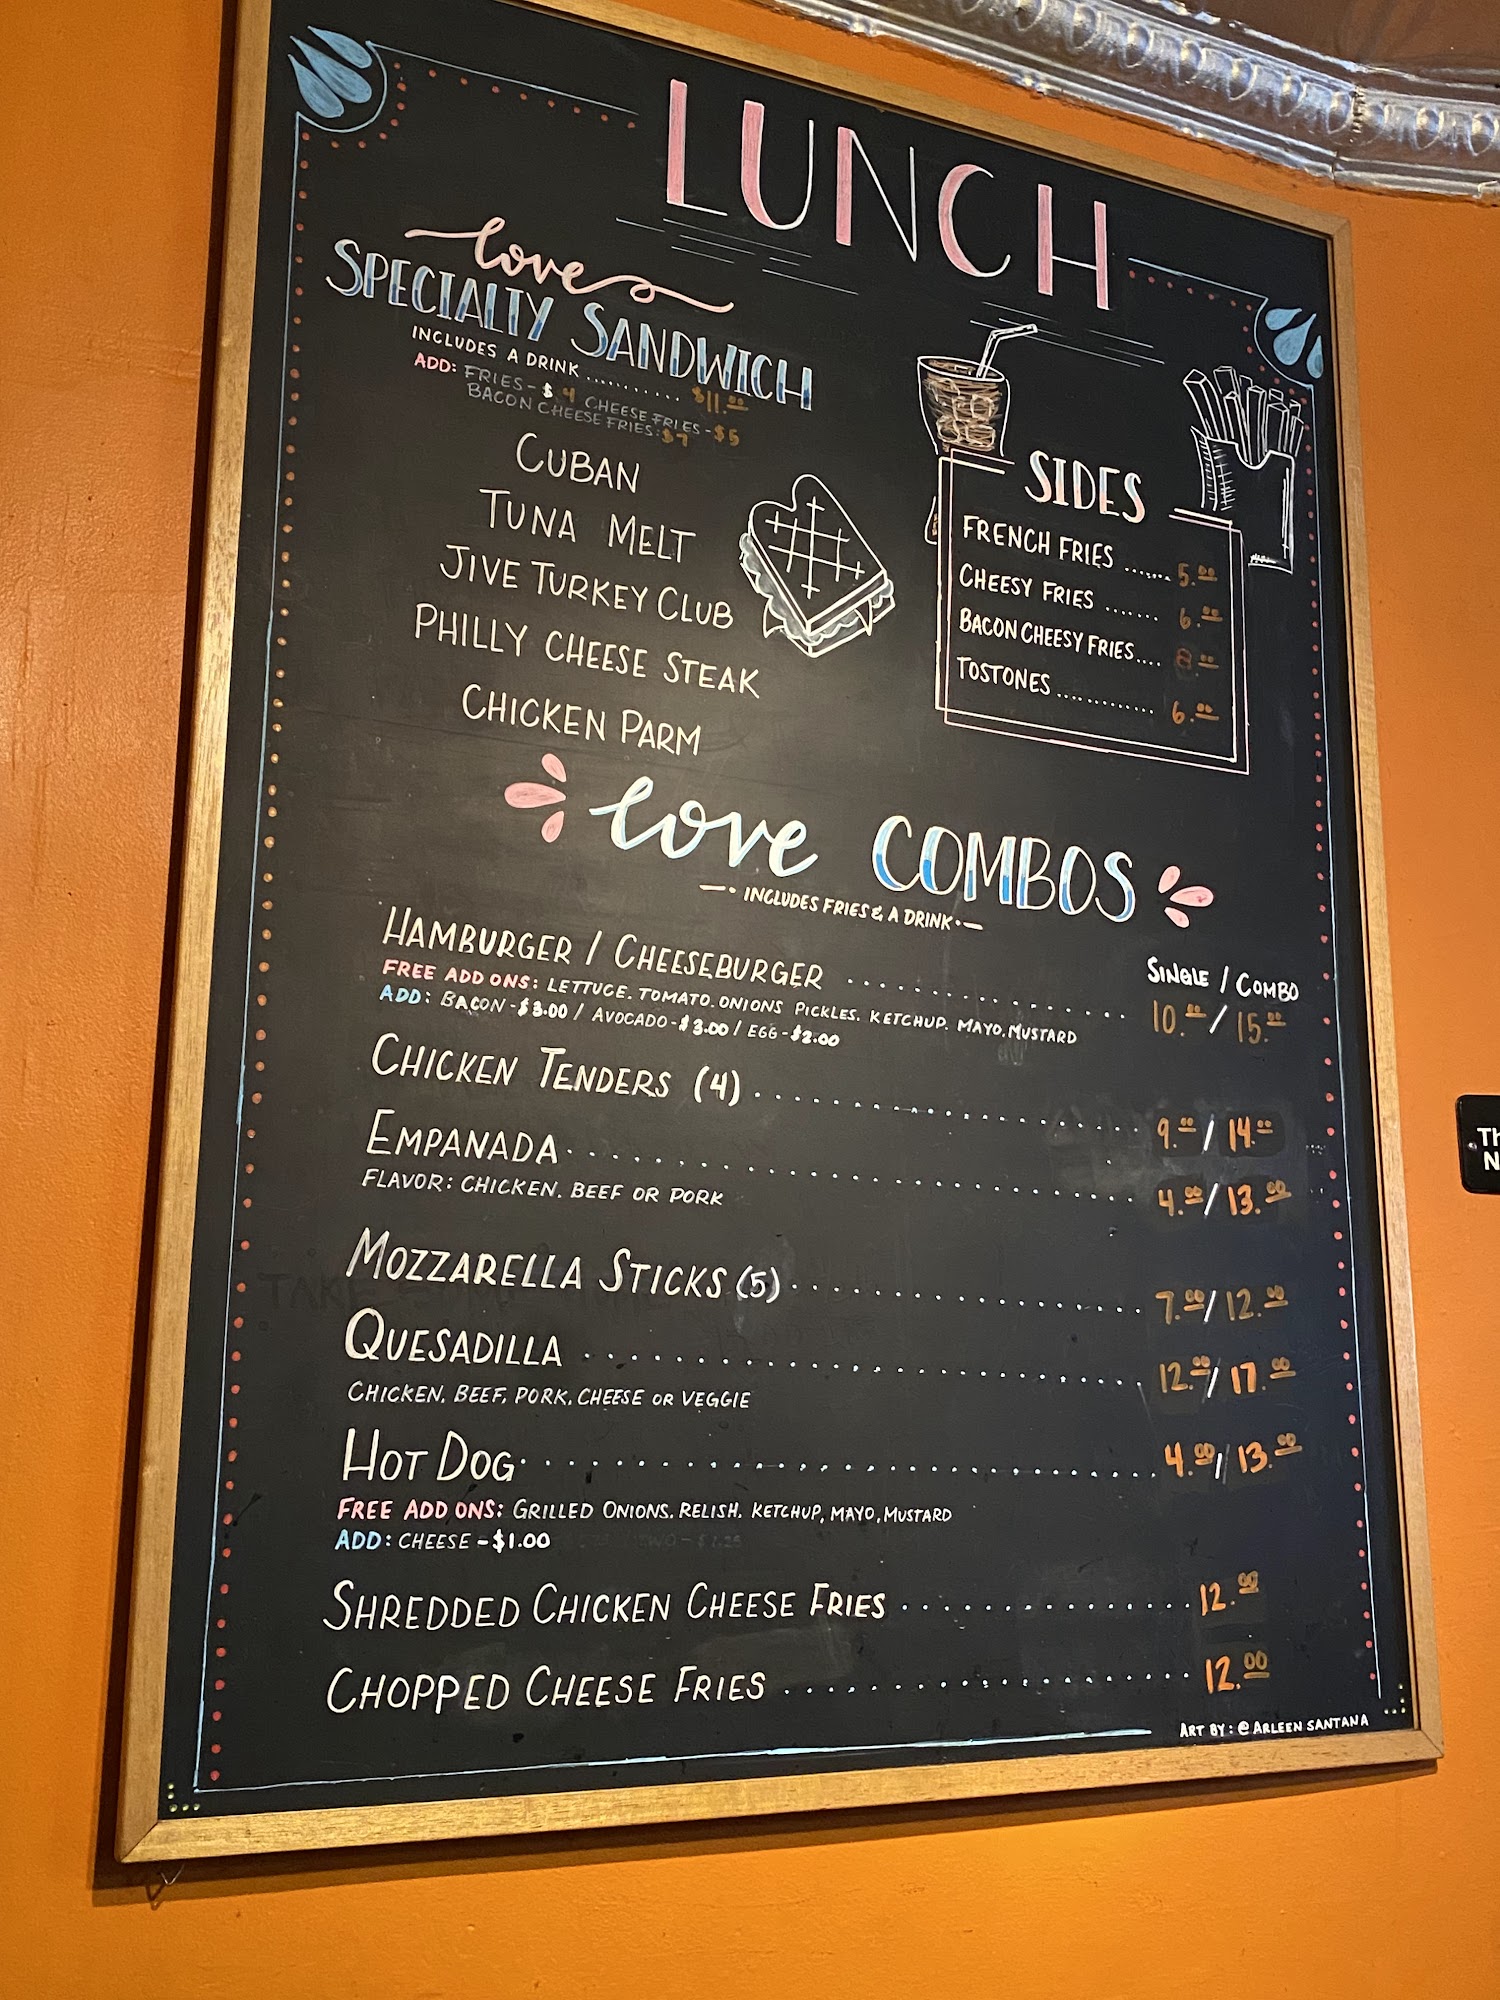 LUNCH
love
SPECIALTY SANDWICH
INCLUDES A DRINK .......... $11.00
ADD: FRIES - $4 CHEESE FRIES - $5
BACON CHEESE FRIES: $7
CUBAN
TUNA MELT
JIVE TURKEY CLUB
PHILLY CHEESE STEAK
CHICKEN PARM
SIDES
FRENCH FRIES ....... 5.00
CHEESY FRIES ....... 6.00
BACON CHEESY FRIES.... 8.00
TOSTONES ............. 6.00
love COMBOS
INCLUDES FRIES & A DRINK
SINGLE / COMBO
HAMBURGER / CHEESEBURGER ............... 10.00 / 15.00
FREE ADD ONS: LETTUCE. TOMATO. ONIONS PICKLES. KETCHUP. MAYO. MUSTARD
ADD: BACON - $3.00 / AVOCADO - $3.00 / EGG - $2.00
CHICKEN TENDERS (4) ................ 9.00 / 14.00
EMPANADA ........................ 4.00 / 13.00
FLAVOR: CHICKEN. BEEF OR PORK
MOZZARELLA STICKS (5) ................ 7.00 / 12.00
QUESADILLA ........................ 12.00 / 17.00
CHICKEN, BEEF, PORK, CHEESE OR VEGGIE
HOT DOG ............................ 4.00 / 13.00
FREE ADD ONS: GRILLED ONIONS. RELISH. KETCHUP, MAYO, MUSTARD
ADD: CHEESE - $1.00
SHREDDED CHICKEN CHEESE FRIES ............... 12.00
CHOPPED CHEESE FRIES .................... 12.00
ART BY: @ARLEENSANTANA